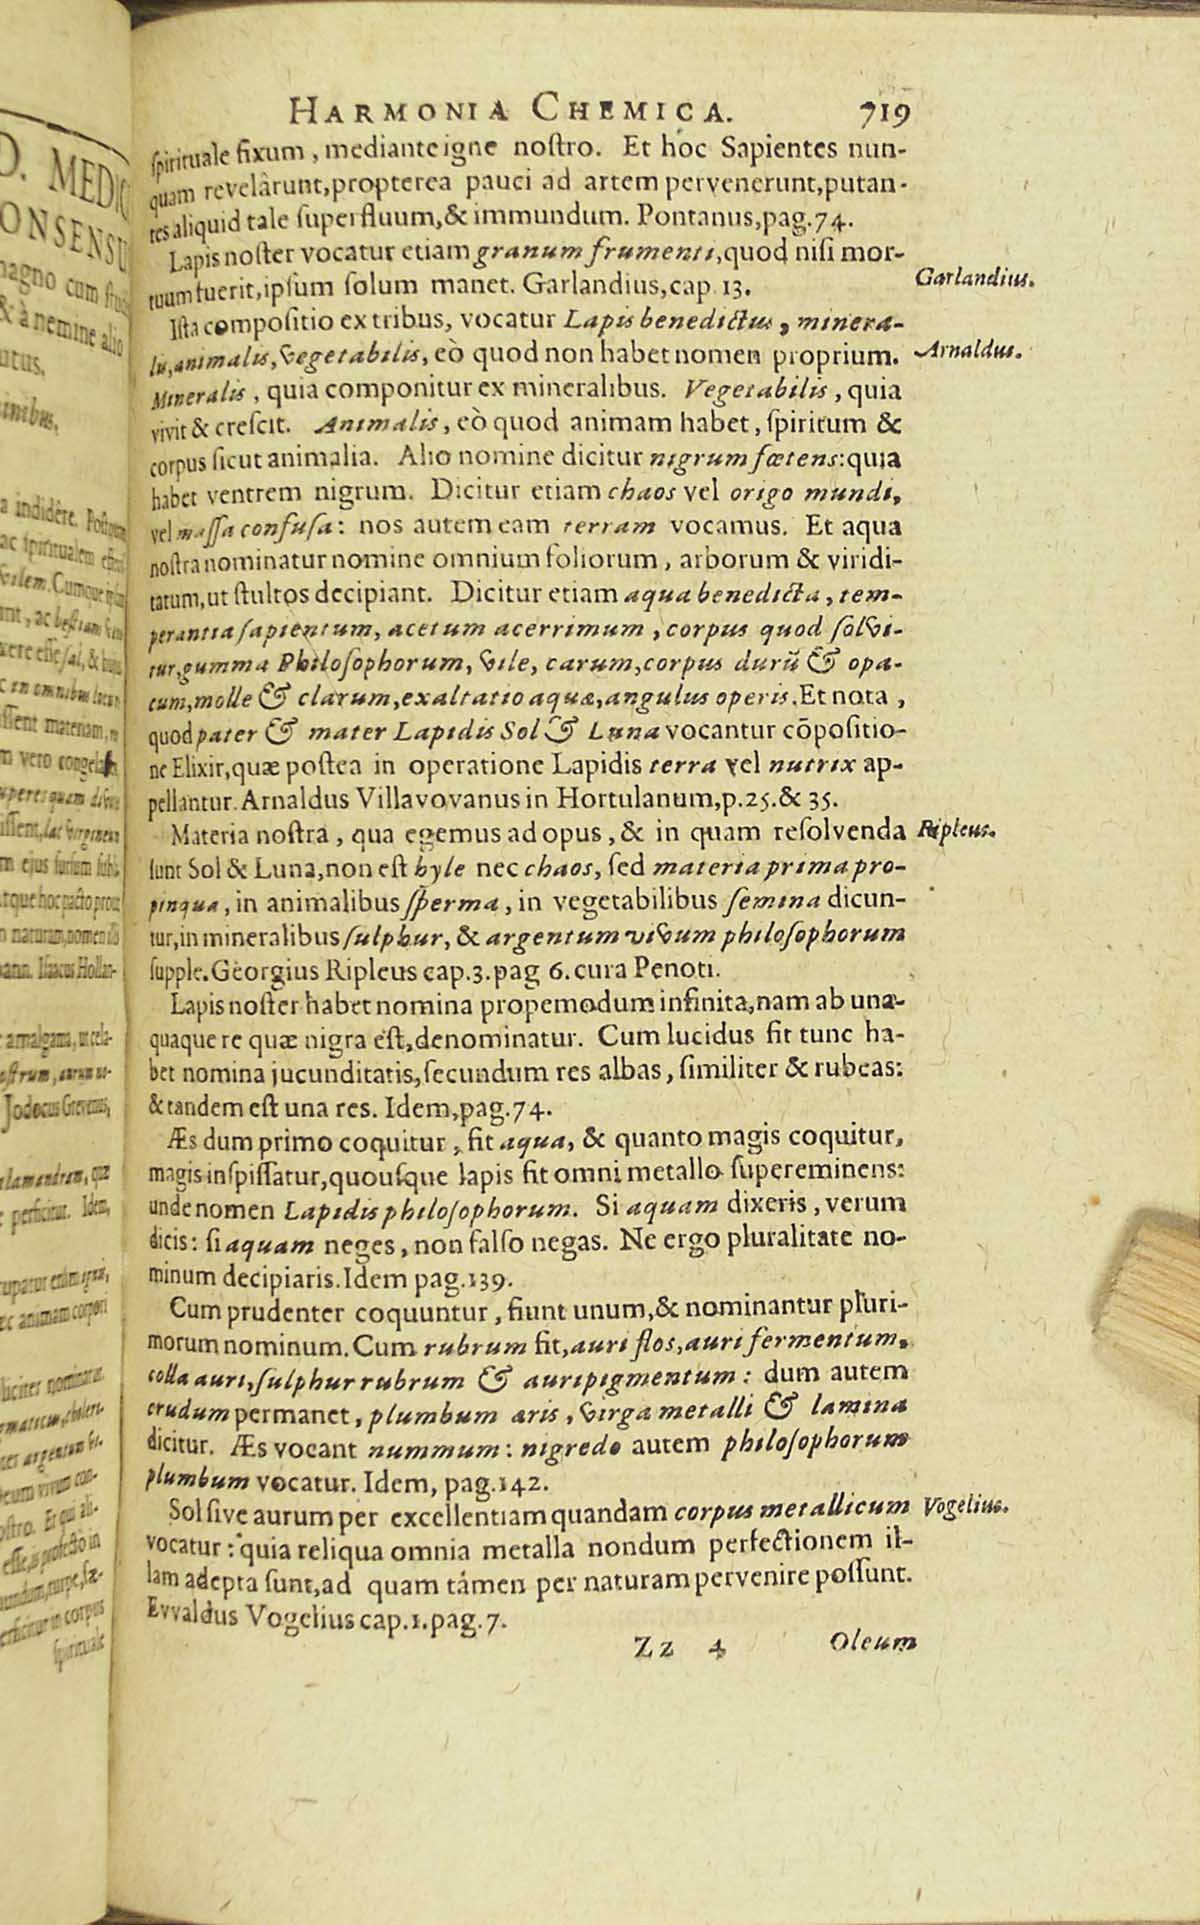 HARMONIA CHEMICA. 719
spirituale fixum, mediante igne nostro. Et hoc Sapientes nun-
quam revelârunt, propterea pauci ad artem pervenerunt, putan-
tes aliquid tale superfluum, & immundum. Pontanus, pag. 74.
Lapis noster vocatur etiam granum frumenti, quod nisi mor-
tuum fuerit, ipsum solum manet. Garlandius, cap. 13.
Garlandius.
Ista compositio ex tribus, vocatur Lapis benedictus, minera-
lis, animalis, vegetabilis, eò quod non habet nomen proprium.
Arnaldus.
Mineralis, quia componitur ex mineralibus. Vegetabilis, quia
vivit & crescit. Animalis, eò quod animam habet, spiritum &
corpus sicut animalia. Alio nomine dicitur nigrum fœtens: quia
habet ventrem nigrum. Dicitur etiam chaos vel origo mundi,
vel massa confusa: nos autem eam terram vocamus. Et aqua
nostra nominatur nomine omnium foliorum, arborum & viridi-
tatum, ut stultos decipiant. Dicitur etiam aqua benedicta, tem-
perantia sapientum, acetum acerrimum, corpus quod solvi-
tur, gumma Philosophorum, vile, carum, corpus durũ & opa-
cum, molle & clarum, exaltatio aquæ, angulus operis. Et nota,
quod pater & mater Lapidis Sol & Luna vocantur cõpositio-
ne Elixir, quæ postea in operatione Lapidis terra vel nutrix ap-
pellantur. Arnaldus Villavovanus in Hortulanum, p. 25. & 35.
Materia nostra, qua egemus ad opus, & in quam resolvenda
Ripleus.
sunt Sol & Luna, non est hyle nec chaos, sed materia prima pro-
pinqua, in animalibus sperma, in vegetabilibus semina dicun-
tur, in mineralibus sulphur, & argentum vivum philosophorum
supple. Georgius Ripleus cap. 3. pag 6. cura Penoti.
Lapis noster habet nomina propemodum infinita, nam ab una-
quaque re quæ nigra est, denominatur. Cum lucidus fit tunc ha-
bet nomina jucunditatis, secundum res albas, similiter & rubeas:
& tandem est una res. Idem, pag. 74.
Æs dum primo coquitur, fit aqua, & quanto magis coquitur,
magis inspissatur, quousque lapis fit omni metallo supereminens:
unde nomen Lapidis philosophorum. Si aquam dixeris, verum
dicis: si aquam neges, non falso negas. Ne ergo pluralitate no-
minum decipiaris. Idem pag. 139.
Cum prudenter coquuntur, fiunt unum, & nominantur pluri-
morum nominum. Cum rubrum fit, auri flos, auri fermentum,
colla auri, sulphur rubrum & auripigmentum: dum autem
crudum permanet, plumbum æris, virga metalli & lamina
dicitur. Æs vocant nummum: nigredo autem philosophorum
plumbum vocatur. Idem, pag. 142.
Sol sive aurum per excellentiam quandam corpus metallicum
Vogelius.
vocatur: quia reliqua omnia metalla nondum perfectionem il-
lam adepta sunt, ad quam tâmen per naturam pervenire possunt.
Evvaldus Vogelius cap. 1. pag. 7.
Zz 4 Oleum